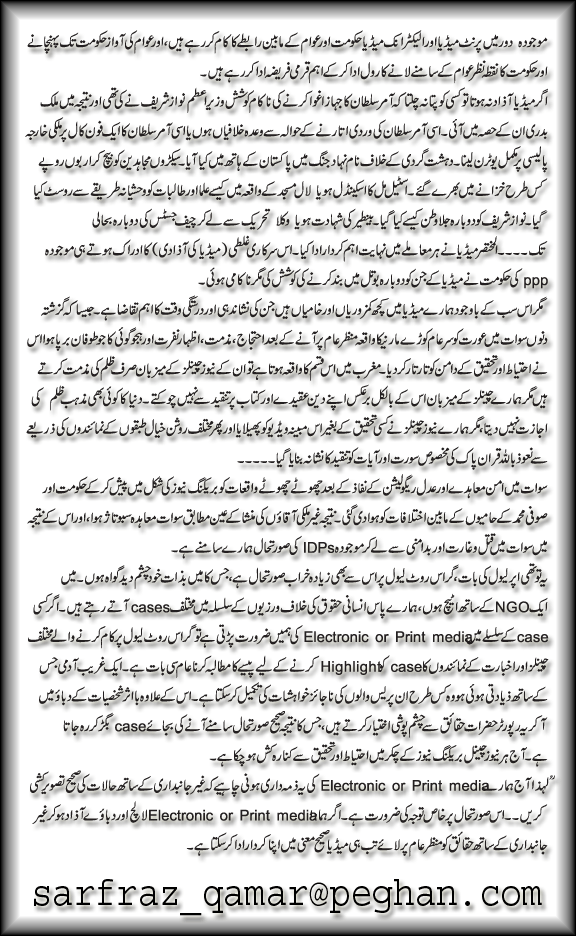 موجودہ دور میں پرنٹ میڈیا اور الیکٹرانک میڈیا حکومت اور عوام کے مابین رابطے کا کام کر رہے ہیں، اور عوام کی آواز حکومت تک پہنچانے
اور حکومت کا نقطہ نظر عوام کے سامنے لانے کا رول ادا کر کے اہم قومی فریضہ ادا کر رہے ہیں۔
اگر میڈیا آزاد نہ ہوتا تو کسی کو پتا نہ چلتا کہ آمر سلطان کا جہاز اغوا کرنے کی ناکام کوشش وزیر اعظم نواز شریف نے کی تھی اور نتیجہ میں ملک
بدری ان کے حصہ میں آئی۔ اسی آمر سلطان کی وردی اتارنے کے حوالہ سے وعدہ خلافیاں ہوں یا اسی آمر سلطان کا ایک فون کال پر ملکی خارجہ
پالیسی پر مکمل یوٹرن لینا۔ دہشت گردی کے خلاف نام نہاد جنگ میں پاکستان کے ہاتھ میں کیا آیا۔ سیکڑوں مجاہدین کو بیچ کر اربوں روپے
کس طرح خزانے میں بھرے گئے۔ اسٹیل مل کا اسکینڈل ہو یا لال مسجد کے واقعہ میں کیسے علما اور طالبات کو وحشیانہ طریقے سے روسٹ کیا
گیا۔ نواز شریف کو دوبارہ جلاوطن کیسے کیا گیا۔ بینظیر کی شہادت ہو یا وکلا تحریک سے لے کر چیف جسٹس کی دوبارہ بحالی
تک۔۔۔۔ المختصر میڈیا نے ہر معاملے میں نہایت اہم کردار ادا کیا۔ اس سرکاری غلطی (میڈیا کی آذادی) کا ادراک ہوتے ہی موجودہ
ppp کی حکومت نے میڈیا کے جن کو دوبارہ بوتل میں بند کرنے کی کوشش کی مگر ناکامی ہوئی۔
مگر اس سب کے باوجود ہمارے میڈیا میں کچھ کمزوریاں اور خامیاں ہیں جن کی نشاندہی اور درستگی وقت کا اہم تقاضا ہے۔ جیسا کہ گزشتہ
دنوں سوات میں عورت کو سر عام کوڑے مارنیکا واقعہ منظر عام پر آنے کے بعد احتجاج، مذمت، اظہار نفرت اور ہجو گوئی کا جو طوفان برپا ہوا اس
نے احتیاط اور تحقیق کے دامن کو تار تار کر دیا۔ مغرب میں اس قسم کا واقعہ ہوتا ہے تو ان کے نیوز چینلز کے میزبان صرف ظلم کی مذمت کرتے
ہیں مگر ہمارے چینلز کے میزبان اس کے بالکل برعکس اپنے دین عقیدے اور کتاب پر تنقید سے نہیں چوکتے۔ دنیا کا کوئی بھی مذہب ظلم کی
اجازت نہیں دیتا، مگر ہمارے نیوز چینلز نے کسی تحقیق کے بغیر اس مبینہ ویڈیو کو پھیلایا اور پھر مختلف روشن خیال طبقوں کے نمائندوں کی ذریعے
سے نعوذ باللہ قران پاک کی مخصوص سورت اور آیات کو تنقید کا نشانہ بنایا گیا۔۔۔۔۔
سوات میں امن معاہدے اور عدل ریگولیشن کے نفاذ کے بعد چھوٹے چھوٹے واقعات کو بریکنگ نیوز کی شکل میں پیش کر کے حکومت اور
صوفی محمد کے حامیوں کے مابین اختلافات کو ہوا دی گئی۔ نتیجہ غیر ملکی آقاؤں کی منشا کے عین مطابق سوات معاہدہ سبوتاژ ہوا، اور اس کے نتیجہ
میں سوات میں قتل وغارت اور بدامنی سے لے کر موجودہ IDPs کی صورتحال ہمارے سامنے ہے۔
یہ تو تھی اپر لیول کی بات، گراس روٹ لیول پر اس سے بھی زیادہ خراب صورتحال ہے، جس کا میں بذات خود چشم دید گواہ ہوں۔ میں
ایک NGO کے ساتھ اٹیچ ہوں، ہمارے پاس انسانی حقوق کی خلاف ورزیوں کے سلسلہ میں مختلف cases آتے رہتے ہیں۔ اگر کسی
case کے سلسلے میں Electronic or Print media کی ہمیں ضرورت پڑتی ہے تو گراس روٹ لیول پر کام کرنے والے مختلف
چینلز اور اخبارت کے نمائندوں کا case کو Highlight کرنے کے لیے پیسے کا مطالبہ کرنا عام سی بات ہے۔ ایک غریب آدمی جس
کے ساتھ ذیادتی ہوئی ہو وہ کس طرح ان پریس والوں کی ناجائز خواہشات کی تکمیل کر سکتا ہے۔ اس کے علاوہ با اثر شخصیات کے دباؤ میں
آ کر یہ رپورٹر حضرات حقائق سے چشم پوشی اختیار کرتے ہیں، جس کا نتیجہ صحیح صورتحال سامنے آنے کی بجائے case بگڑ کر رہ جاتا
ہے۔ آج ہر نیوز چینل بریکنگ نیوز کے چکر میں احتیاط اور تحقیق سے کنارہ کش ہو چکا ہے۔
لہذا آج ہمارے Electronic or Print media کی یہ ذمہ داری ہونی چاہیے کہ غیر جانبداری کے ساتھ حالات کی صحیح تصویر کشی
کریں۔۔ اس صورتحال پر خاص توجہ کی ضرورت ہے۔ اگر ہمارا Electronic or Print media لالچ اور دباؤ سے آذاد ہو کر غیر
جانبداری کے ساتھ حقائق کو منظر عام پر لائے تب ہی میڈیا صحیح معنی میں اپنا کردار ادا کر سکتا ہے۔
sarfraz_qamar@peghan.com